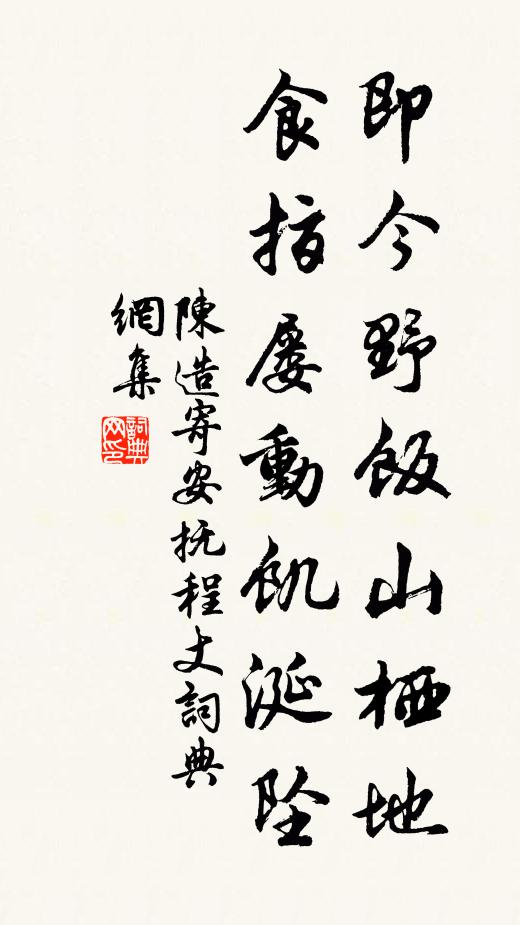 即今野飯山栖地
食指屡動飢涎坠
陳造寄安抚程丈詞典
網集
詞典
网印